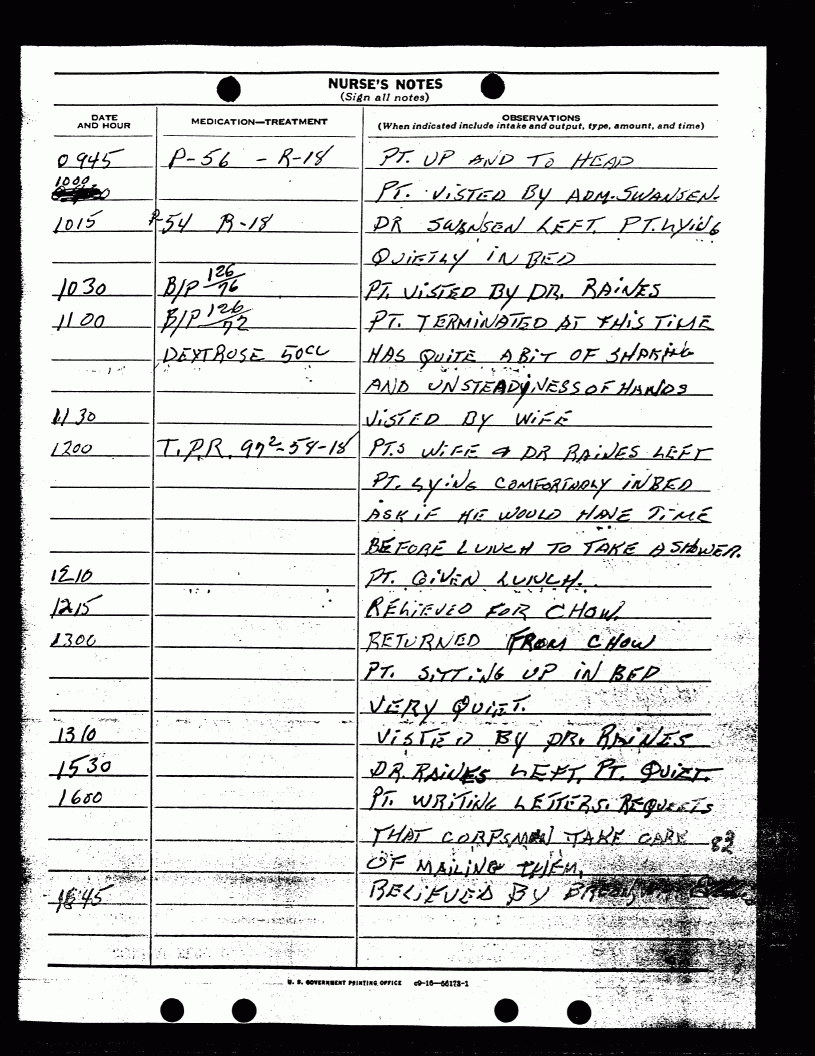 NURSE'S NOTES
(Sign all notes)
DATE AND HOUR MEDICATION—TREATMENT OBSERVATIONS
(When indicated include intake and output, type, amount, and time)
0945 P-56 - R-18 PT. UP AND TO HEAD
1000 PT. VISTED BY ADM. SWANSEN.
1015 P-54 R-18 DR SWANSEN LEFT. PT. LYING
QUIETLY IN BED
1030 B/P 126/76 PT. VISTED BY DR. RAINES
1100 B/P 126/72 PT. TERMINATED AT THIS TIME
DEXTROSE 50CC HAS QUITE A BIT OF SHAKING
AND UNSTEADYNESS OF HANDS
1130 VISTED BY WIFE
1200 T.P.R. 97²-54-18 PT.S WIFE & DR RAINES LEFT
PT. LYING COMFORTABLY IN BED
ASK IF HE WOULD HAVE TIME
BEFORE LUNCH TO TAKE A SHOWER.
1210 PT. GIVEN LUNCH.
1215 RELIEVED FOR CHOW.
1300 RETURNED FROM CHOW
PT. SITTING UP IN BED
VERY QUIET.
1310 VISTED BY DR. RAINES
1530 DR RAINES LEFT. PT. QUIET.
1600 PT. WRITING LETTERS. REQUESTS
THAT CORPSMEN TAKE CARE 82
OF MAILING THEM.
1545 RELIEVED BY
U. S. GOVERNMENT PRINTING OFFICE c9-16-66173-1